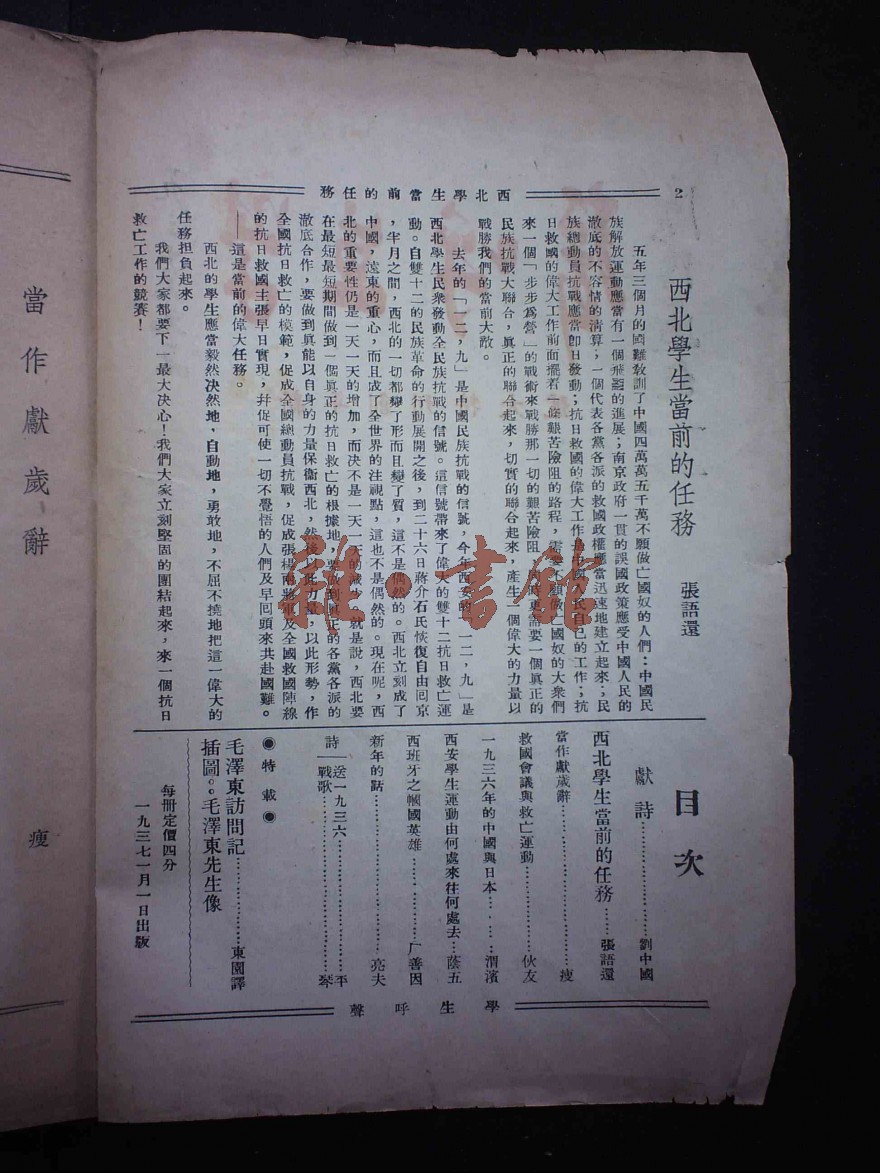 2
西北學生當前的任務
西北學生當前的任務
張語還
五年三個月的國難教訓了中國四萬萬五千萬不願做亡國奴的人們：中國民
族解放運動應當有一個飛躍的進展；南京政府一貫的誤國政策應受中國人民的
澈底的不容情的清算；一個代表各黨各派的救國政權應當迅速地建立起來；民
族總動員抗戰應當卽日發動；抗日救國的偉大工作是中國人民自己的工作；抗
日救國的偉大工作前面擺着一條艱苦險阻的路程，需要不願做亡國奴的大衆們
來一個「步步爲營」的戰術來戰勝那一切的艱苦險阻，同時更需要一個眞正的
民族抗戰大聯合，眞正的聯合起來，切實的聯合起來，產生一個偉大的力量以
戰勝我們的當前大敵。
去年的「一二，九」是中國民族抗戰的信號，今年西安的「一二，九」是
西北學生民衆發動全民族抗戰的信號。這信號帶來了偉大的雙十二抗日救亡運
動。自雙十二的民族革命的行動展開之後，到二十六日蔣介石氏恢復自由囘京
，半月之間，西北的一切都變了形而且變了質，這不是偶然的。西北立刻成了
中國，遠東的重心，而且成了全世界的注視點，這也不是偶然的。現在呢，西
北的重要性仍是一天一天的增加，而決不是一天一天的減少。就是說，西北要
在最短最短期間做到一個眞正的抗日救亡的根據地，要做到眞正的各黨各派的
澈底合作，要做到眞能以自身的力量保衞西北，然後以此力量，以此形勢，作
全國抗日救亡的模範，促成全國總動員抗戰，促成張楊兩將軍及全國救國陣線
的抗日救國主張早日實現，幷促可使一切不覺悟的人們及早囘頭來共赴國難。
——這是當前的偉大任務。
西北的學生應當毅然決然地，自動地，勇敢地，不屈不撓地把這一偉大的
任務担負起來。
我們大家都要下一最大決心！我們大家立刻堅固的團結起來，來一個抗日
救亡工作的競賽！
目次
獻詩……………………劉中國
西北學生當前的任務……張語還
當作獻歲辭……………………瘦
救國會議與救亡運動…………伙友
一九三六年的中國與日本………渭濱
西安學生運動由何處來往何處去…蔭五
西班牙之幗國英雄………厂善因
新年的點……………………亮夫
詩—送一九三六………………平
戰歌……………………琴
◉特載◉
毛澤東訪問記……………東園譯
插圖：毛澤東先生像
每冊定價四分
一九三七一月一日出版
學生呼聲
當作獻歲辭
瘦
龍·書館